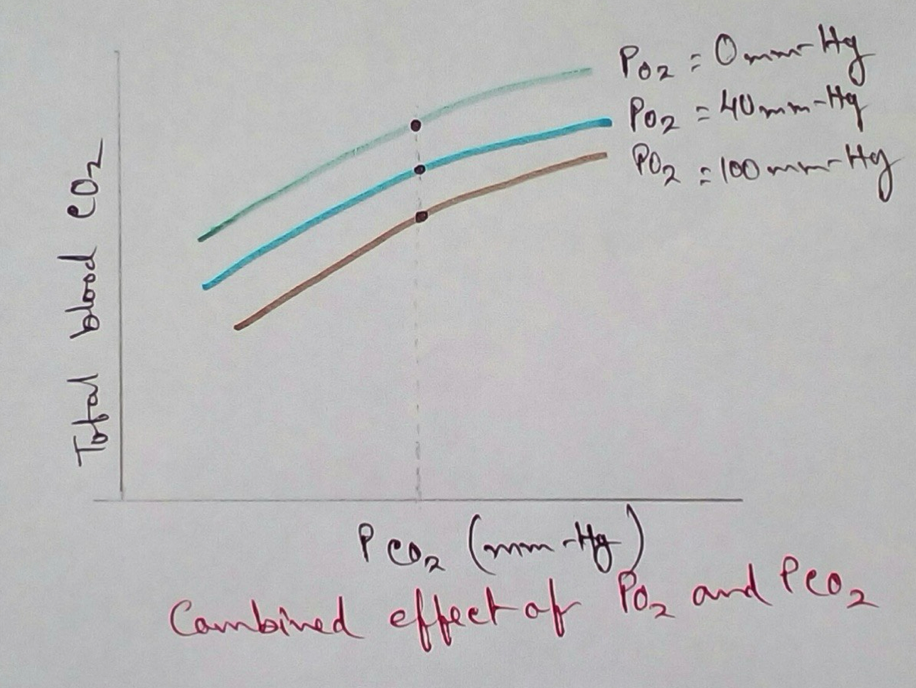 PO2 = 0 mm-Hg
PO2 = 40 mm-Hg
PO2 = 100 mm-Hg
Total blood CO2
PCO2 (mm-Hg)
Combined effect of PO2 and PCO2